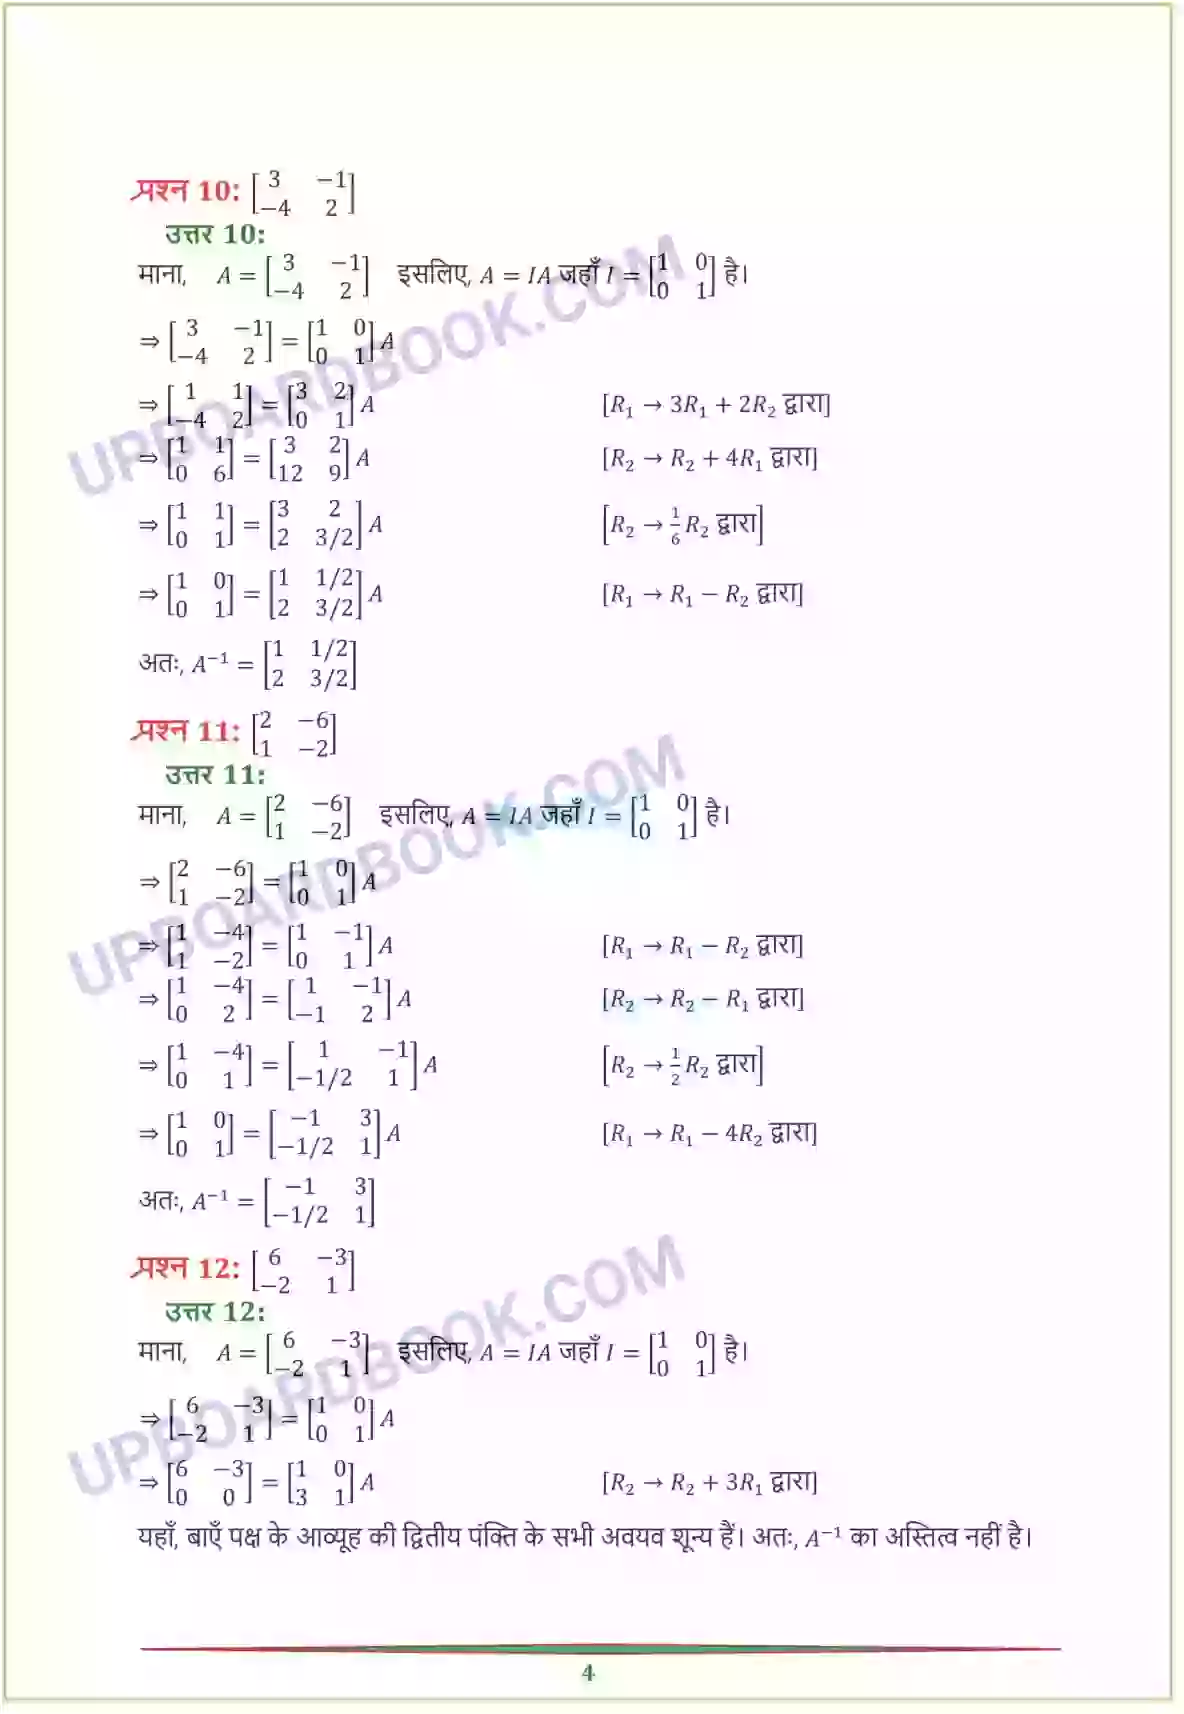 प्रश्न 10: [3 −1; −4 2]
उत्तर 10:
माना, A = [3 −1; −4 2] इसलिए, A = IA जहाँ I = [1 0; 0 1] है।
⇒ [3 −1; −4 2] = [1 0; 0 1] A
⇒ [1 1; −4 2] = [3 2; 0 1] A [R₁ → 3R₁ + 2R₂ द्वारा]
⇒ [1 1; 0 6] = [3 2; 12 9] A [R₂ → R₂ + 4R₁ द्वारा]
⇒ [1 1; 0 1] = [3 2; 2 3/2] A [R₂ → 1/6 R₂ द्वारा]
⇒ [1 0; 0 1] = [1 1/2; 2 3/2] A [R₁ → R₁ − R₂ द्वारा]
अतः, A⁻¹ = [1 1/2; 2 3/2]
प्रश्न 11: [2 −6; 1 −2]
उत्तर 11:
माना, A = [2 −6; 1 −2] इसलिए, A = IA जहाँ I = [1 0; 0 1] है।
⇒ [2 −6; 1 −2] = [1 0; 0 1] A
⇒ [1 −4; 1 −2] = [1 −1; 0 1] A [R₁ → R₁ − R₂ द्वारा]
⇒ [1 −4; 0 2] = [1 −1; −1 2] A [R₂ → R₂ − R₁ द्वारा]
⇒ [1 −4; 0 1] = [1 −1; −1/2 1] A [R₂ → 1/2 R₂ द्वारा]
⇒ [1 0; 0 1] = [−1 3; −1/2 1] A [R₁ → R₁ − 4R₂ द्वारा]
अतः, A⁻¹ = [−1 3; −1/2 1]
प्रश्न 12: [6 −3; −2 1]
उत्तर 12:
माना, A = [6 −3; −2 1] इसलिए, A = IA जहाँ I = [1 0; 0 1] है।
⇒ [6 −3; −2 1] = [1 0; 0 1] A
⇒ [6 −3; 0 0] = [1 0; 3 1] A [R₂ → R₂ + 3R₁ द्वारा]
यहाँ, बाएँ पक्ष के आव्यूह की द्वितीय पंक्ति के सभी अवयव शून्य हैं। अतः, A⁻¹ का अस्तित्व नहीं है।
4
UPBOARDBOOK.COM
UPBOARDBOOK.COM
UPBOARDBOOK.COM